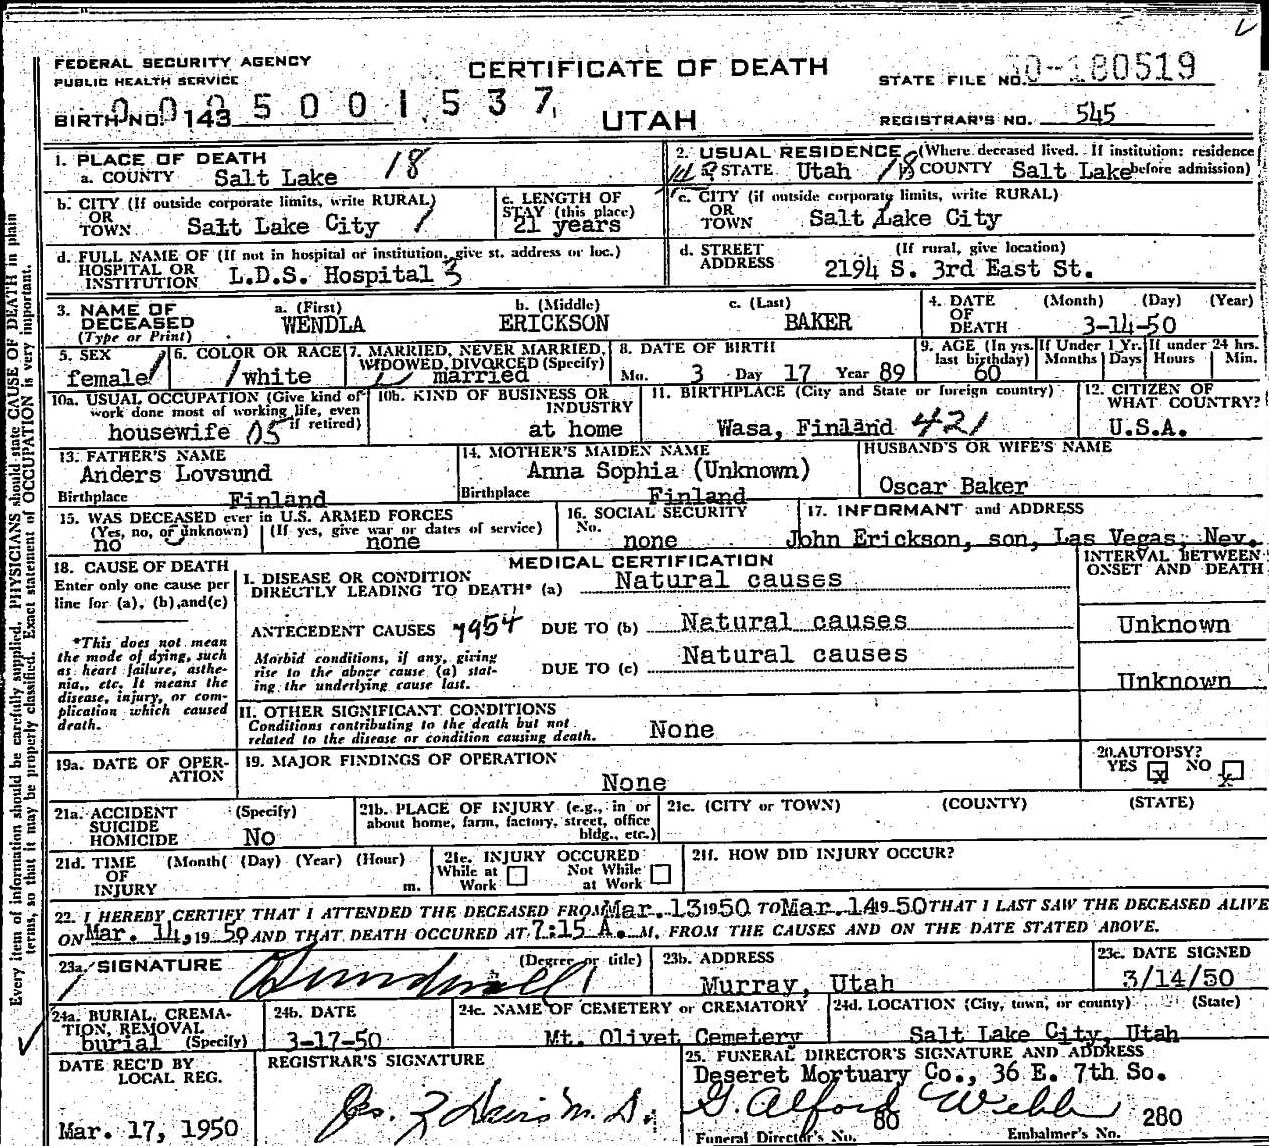 FEDERAL SECURITY AGENCY
PUBLIC HEALTH SERVICE
CERTIFICATE OF DEATH
UTAH
STATE FILE NO. 0-180519
BIRTH NO. 143
0005001537
REGISTRAR'S NO. 545
1. PLACE OF DEATH
a. COUNTY Salt Lake 18
2. USUAL RESIDENCE (Where deceased lived. If institution: residence before admission)
a. STATE Utah 18 b. COUNTY Salt Lake
b. CITY (If outside corporate limits, write RURAL)
OR
TOWN Salt Lake City 1
c. LENGTH OF
STAY (this place)
21 years
c. CITY (if outside corporate limits, write RURAL)
OR
TOWN Salt Lake City
d. FULL NAME OF (If not in hospital or institution, give st. address or loc.)
HOSPITAL OR
INSTITUTION L.D.S. Hospital 3
d. STREET (If rural, give location)
ADDRESS 2194 S. 3rd East St.
3. NAME OF
DECEASED
(Type or Print)
a. (First)
WENDLA
b. (Middle)
ERICKSON
c. (Last)
BAKER
4. DATE (Month) (Day) (Year)
OF
DEATH 3-14-50
5. SEX
female
6. COLOR OR RACE
white
7. MARRIED, NEVER MARRIED,
WIDOWED, DIVORCED (Specify)
married
8. DATE OF BIRTH
Mo. 3 Day 17 Year 89
9. AGE (In yrs. last birthday)
60
If Under 1 Yr.
Months Days
If under 24 hrs.
Hours Min.
10a. USUAL OCCUPATION (Give kind of
work done most of working life, even
if retired)
housewife 05
10b. KIND OF BUSINESS OR
INDUSTRY
at home
11. BIRTHPLACE (City and State or foreign country)
Wasa, Finland 421
12. CITIZEN OF
WHAT COUNTRY?
U.S.A.
13. FATHER'S NAME
Anders Lovsund
Birthplace Finland
14. MOTHER'S MAIDEN NAME
Anna Sophia (Unknown)
Birthplace Finland
HUSBAND'S OR WIFE'S NAME
Oscar Baker
15. WAS DECEASED ever in U.S. ARMED FORCES
(Yes, no, or unknown) (If yes, give war or dates of service)
no none
16. SOCIAL SECURITY
No.
none
17. INFORMANT and ADDRESS
John Erickson, son, Las Vegas, Nev.
18. CAUSE OF DEATH
Enter only one cause per
line for (a), (b), and(c)
*This does not mean
the mode of dying, such
as heart failure, asthe-
nia,, etc. It means the
disease, injury, or com-
plication which caused
death.
MEDICAL CERTIFICATION
INTERVAL BETWEEN
ONSET AND DEATH
I. DISEASE OR CONDITION
DIRECTLY LEADING TO DEATH* (a) Natural causes
ANTECEDENT CAUSES 7954 DUE TO (b) Natural causes
Unknown
Morbid conditions, if any, giving
rise to the above cause (a) stat-
ing the underlying cause last.
DUE TO (c) Natural causes
Unknown
II. OTHER SIGNIFICANT CONDITIONS
Conditions contributing to the death but not
related to the disease or condition causing death.
None
19a. DATE OF OPER-
ATION
19. MAJOR FINDINGS OF OPERATION
None
20. AUTOPSY?
YES x NO x
21a. ACCIDENT (Specify)
SUICIDE
HOMICIDE No
21b. PLACE OF INJURY (e.g., in or
about home, farm, factory, street, office
bldg., etc.)
21c. (CITY or TOWN) (COUNTY) (STATE)
21d. TIME (Month( (Day) (Year) (Hour)
OF
INJURY m.
21e. INJURY OCCURED
While at Work
Not While at Work
21f. HOW DID INJURY OCCUR?
22. I HEREBY CERTIFY THAT I ATTENDED THE DECEASED FROM Mar. 13 1950 TO Mar. 14 19 50 THAT I LAST SAW THE DECEASED ALIVE
ON Mar. 14, 19 50 AND THAT DEATH OCCURED AT 7:15 A. M. FROM THE CAUSES AND ON THE DATE STATED ABOVE.
23a. SIGNATURE (Degree or title)
23b. ADDRESS
Murray, Utah
23c. DATE SIGNED
3/14/50
24a. BURIAL, CREMA-
TION, REMOVAL
burial (Specify)
24b. DATE
3-17-50
24c. NAME OF CEMETERY or CREMATORY
Mt. Olivet Cemetery
24d. LOCATION (City, town, or county) (State)
Salt Lake City, Utah
DATE REC'D BY
LOCAL REG.
Mar. 17, 1950
REGISTRAR'S SIGNATURE
25. FUNERAL DIRECTOR'S SIGNATURE AND ADDRESS
Deseret Mortuary Co., 36 E. 7th So.
G. Alford Webb
80 280
Funeral Director's No. Embalmer's No.
Every item of information should be carefully supplied. PHYSICIANS should state CAUSE OF DEATH in plain
terms, so that it may be properly classified. Exact statement of OCCUPATION is very important.